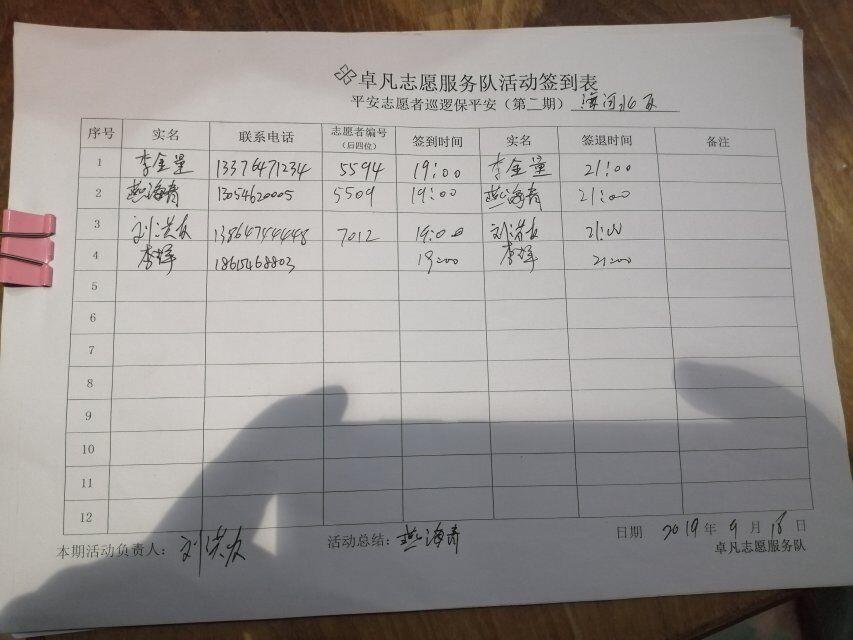 卓凡志愿服务队活动签到表
平安志愿者巡逻保平安（第二期）滨河北区
序号 实名 联系电话 志愿者编号（后四位） 签到时间 实名 签退时间 备注
1 李金量 13376471234 5594 19:00 李金量 21:00
2 燕海青 13054620005 5509 19:00 燕海青 21:00
3 刘洪友 13864744448 7012 19:00 刘洪友 21:00
4 李辉 18615468803 19:00 李辉 21:00
5
6
7
8
9
10
11
12
本期活动负责人：刘洪友 活动总结：燕海青 日期 2019年9月18日
卓凡志愿服务队